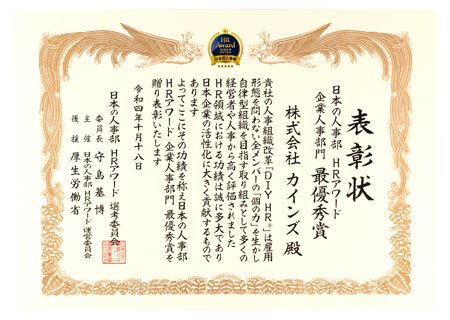 HR
Award
2022
日本の人事部
表彰状
日本の人事部 HRアワード
企業人事部門 最優秀賞
株式会社 カインズ 殿
貴社の人事組織改革「DIY HR®」は雇用
形態を問わない全メンバーの「個の力」を生かし
自律型組織を目指す取り組みとして多くの
経営者や人事から高く評価されました
HR領域における功績は誠に多大であり
日本企業の活性化に大きく貢献するもので
あります
よってここにその功績を称え日本の人事部
HRアワード 企業人事部門 最優秀賞を
贈り表彰いたします
令和四年十月十八日
日本の人事部 HRアワード 選考委員会
委員長 守島基博
主催 日本の人事部「HRアワード」運営委員会
後援 厚生労働省